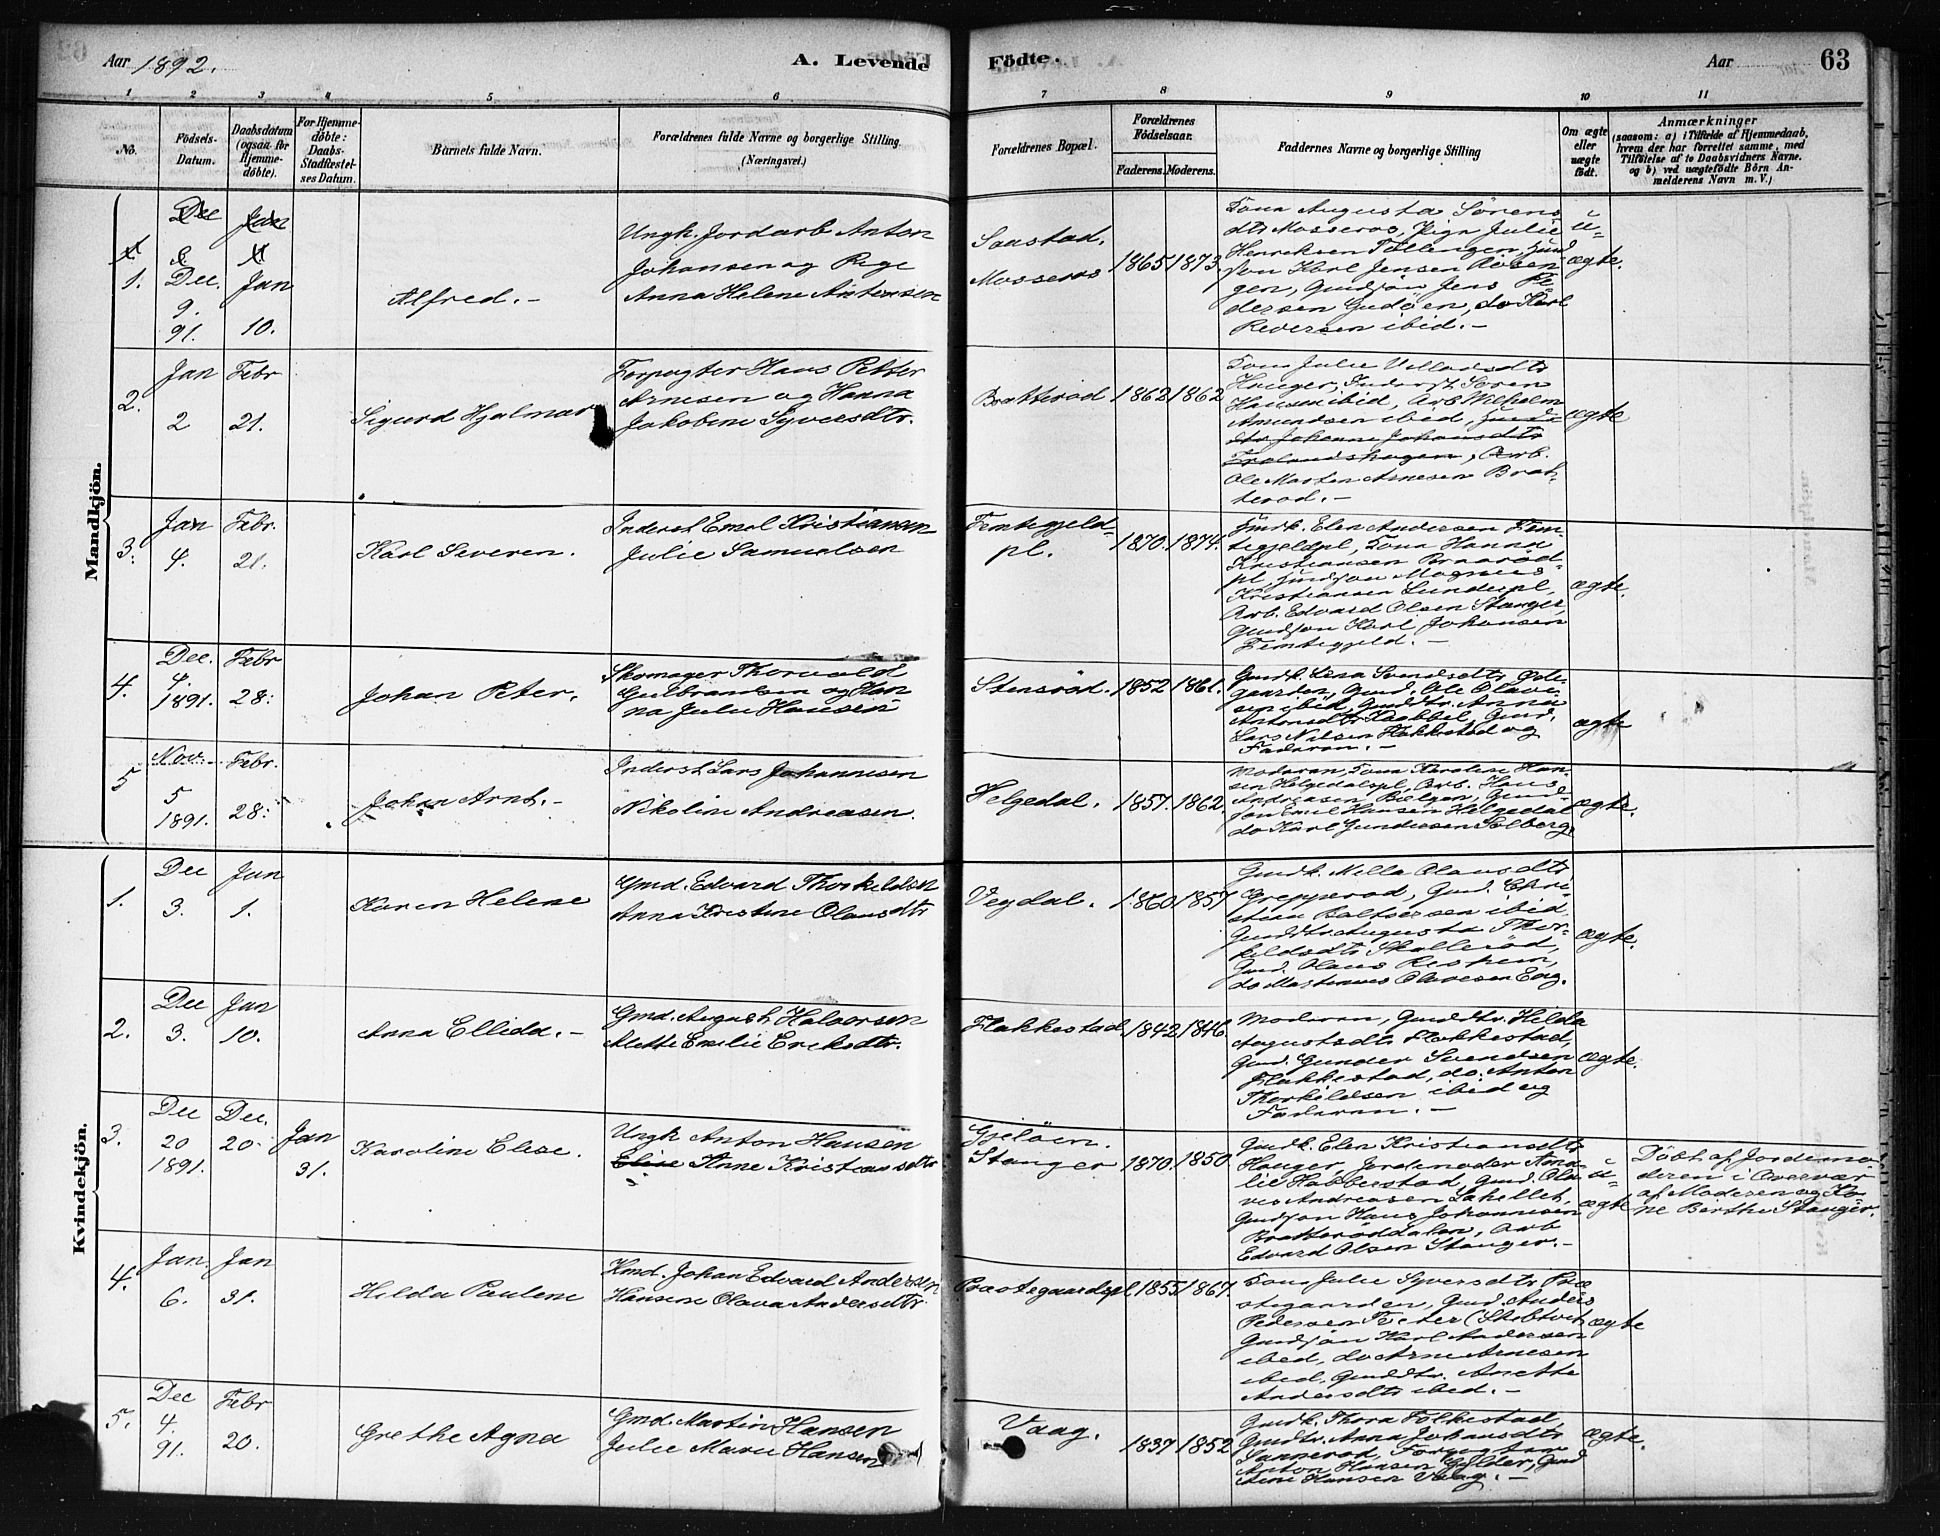 Aar 1892. A. Levende Födte. Aar 63
1 2 3 4 5 6 7 8 9 10 11
No. Födsels-Datum. Daabsdatum (ogsaa for Hjemme-döbte). For Hjemme-döbte: Daabs-Stadfæstel-ses Datum. Barnets fulde Navn. Forældrenes fulde Navne og borgerlige Stilling (Næringsvei.) Forældrenes Bopæl. Forældrenes Födselsaar. Faderens. Moderens. Faddernes Navne og borgerlige Stilling Om ægte eller uægte födt. Anmærkninger (saasom: a) i Tilfælde af Hjemmedaab, hvem der har forrettet samme, med Tilföielse af to Daabsvidners Navne. og b) ved uægtefödte Börn An-melderens Navn m. V.)
Mandkjön.
Dec Jan
1. Dec. 9. 91. Jan 10. Alfred.-
Ungk. Jordarb Anton
Johansen og Pige
Anna Helene Antensen
Saustad.
Mosseros
1865 1873.
Kona Augusta Sörens
dtr Mosseros, Pige Julie
Henriksen
Karl Jensen
gen, Gmdsön Jens Pe-
dersen Gudöen, do Karl
Pedersen ibid.-
u-
ægte.
2. Jan 2 Febr 21. Sigurd Hjalmar
Forpagter Hans Petter
Arnesen og Hanna
Jakobine Syversdtr.
Bratteröd 1862 1862
Kona Julie Villadsdtr
Hauger, Inderst Sören
Hansen ibid, Arb Wilhelm
Amundsen ibid,
Johanne Johansdtr
Arb.
Ole Martin Arnesen Brat-
teröd.-
ægte
3. Jan 4. Febr. 21. Karl Severin.
Inderst Emil Kristiansen
Julie Samuelsen
Femtegjeld-
pl.
1870. 1874.
Gmdk. Elen Andersen Fem-
tegjeldpl, Kona Hanna
Kristiansen Braaröd-
pl, Gmdsön Magnus
Kristiansen Lunderpl,
Arb. Edvard Olsen Stanger,
Gmdsön Karl Johansen
Femtegjeld.-
ægte.
4. Dec. 4. 1891. Febr 28. Johan Peter.
Skomager Thorvald
Gulbrandsen og Han-
na Julie Hansen
Stensröd. 1852 1861.
Gmdk. Lena Svendsdtr Öde-
gaarden, Gmd. Ole Olave-
sen ibid, Gmddtr. Anna
Antonsdtr Kabbel, Gmd.
Lars Nilsen Flakkestad og
Faderen.-
ægte
5 Nov. 5 1891. Febr. 28. Johan Arnt.-
Inderst Lars Johannesen
Nikoline Andreasen.
Helgedal. 1857. 1862.
Moderen, Kona Karoline Han-
sen Helgedalspl, Arb. Hans
Andreasen Bölgen, Gmd-
sön Emil Hansen Helgedal
do Karl Gundersen Solberg
ægte.
Kvindekjön.
1. Dec 3. Jan 1. Karen Helene
Gmd. Edvard Thorkildsen
Anna Kristine Olausdtr
Vegdal. 1860 1857
Gmdk. Milla Olausdtr
Grepperöd, Gmd. Chri-
stian Baltsersen ibid,
Gmddtr Augusta Thor-
kildsdtr Skalleröd,
Gmd. Olaus Reshem,
do Martinius Olavesen Eng.
ægte.
2. Dec 3. Jan 10. Anna Ellida.-
Gmd. August Halvorsen
Alette Emilie Eriksdtr.
Flakkestad 1842 1846.
Moderen, Gmddtr. Hilda
Augustsdtr Flakkestad,
Gmd. Gunder Svendsen
Flakkestad, do. Anton
Thorkildsen ibid og
Faderen.-
ægte.
3. Dec 20 1891. Dec. 20. Jan 31. Karoline Elise.
Ungk Anton Hansen
Anne Kristiansdtr
Gjelöen.
Stanger
1870. 1850.
Gmdk. Elen Kristiansdtr
Hauger, Jordmoder Ama-
lie Habberstad, Gmd. Ola-
ves Andreasen Lahellet,
Gmdsön Hans Johannesen
Bratteröddalen, Arb
Edvard Olsen Stanger.-
u-
ægte
Döbt af Jordemo-
deren i Overvær
af Moderen og Ko-
ne Berthe Stanger.
4. Jan 6. Jan 31. Hilda Pauline
Hmd. Johan Edvard Andersen
Hansine Olava Andersdtr.
Præstegaardspl. 1855. 1867.
Kona Julie Syversdtr Præ-
stegaarden, Gmd. Anders
Pedersen
Gmdsön Karl Andersen
ibid, do Arne Arnesen
ibid, Gmddtr. Anette
Andersdtr ibid.-
ægte
5. Dec 4. 91. Febr 20. Grethe Agna
Gmd. Martin Hansen
Julie Marie Hansen
Vaag. 1837 1852
Gmdk. Thora Folkestad,
Gmdtr. Anna Johansdtr
Sanneröd, Forpagter
Anton Hansen Gylder, Gmd
Arne Hansen Vaag.-
ægte.